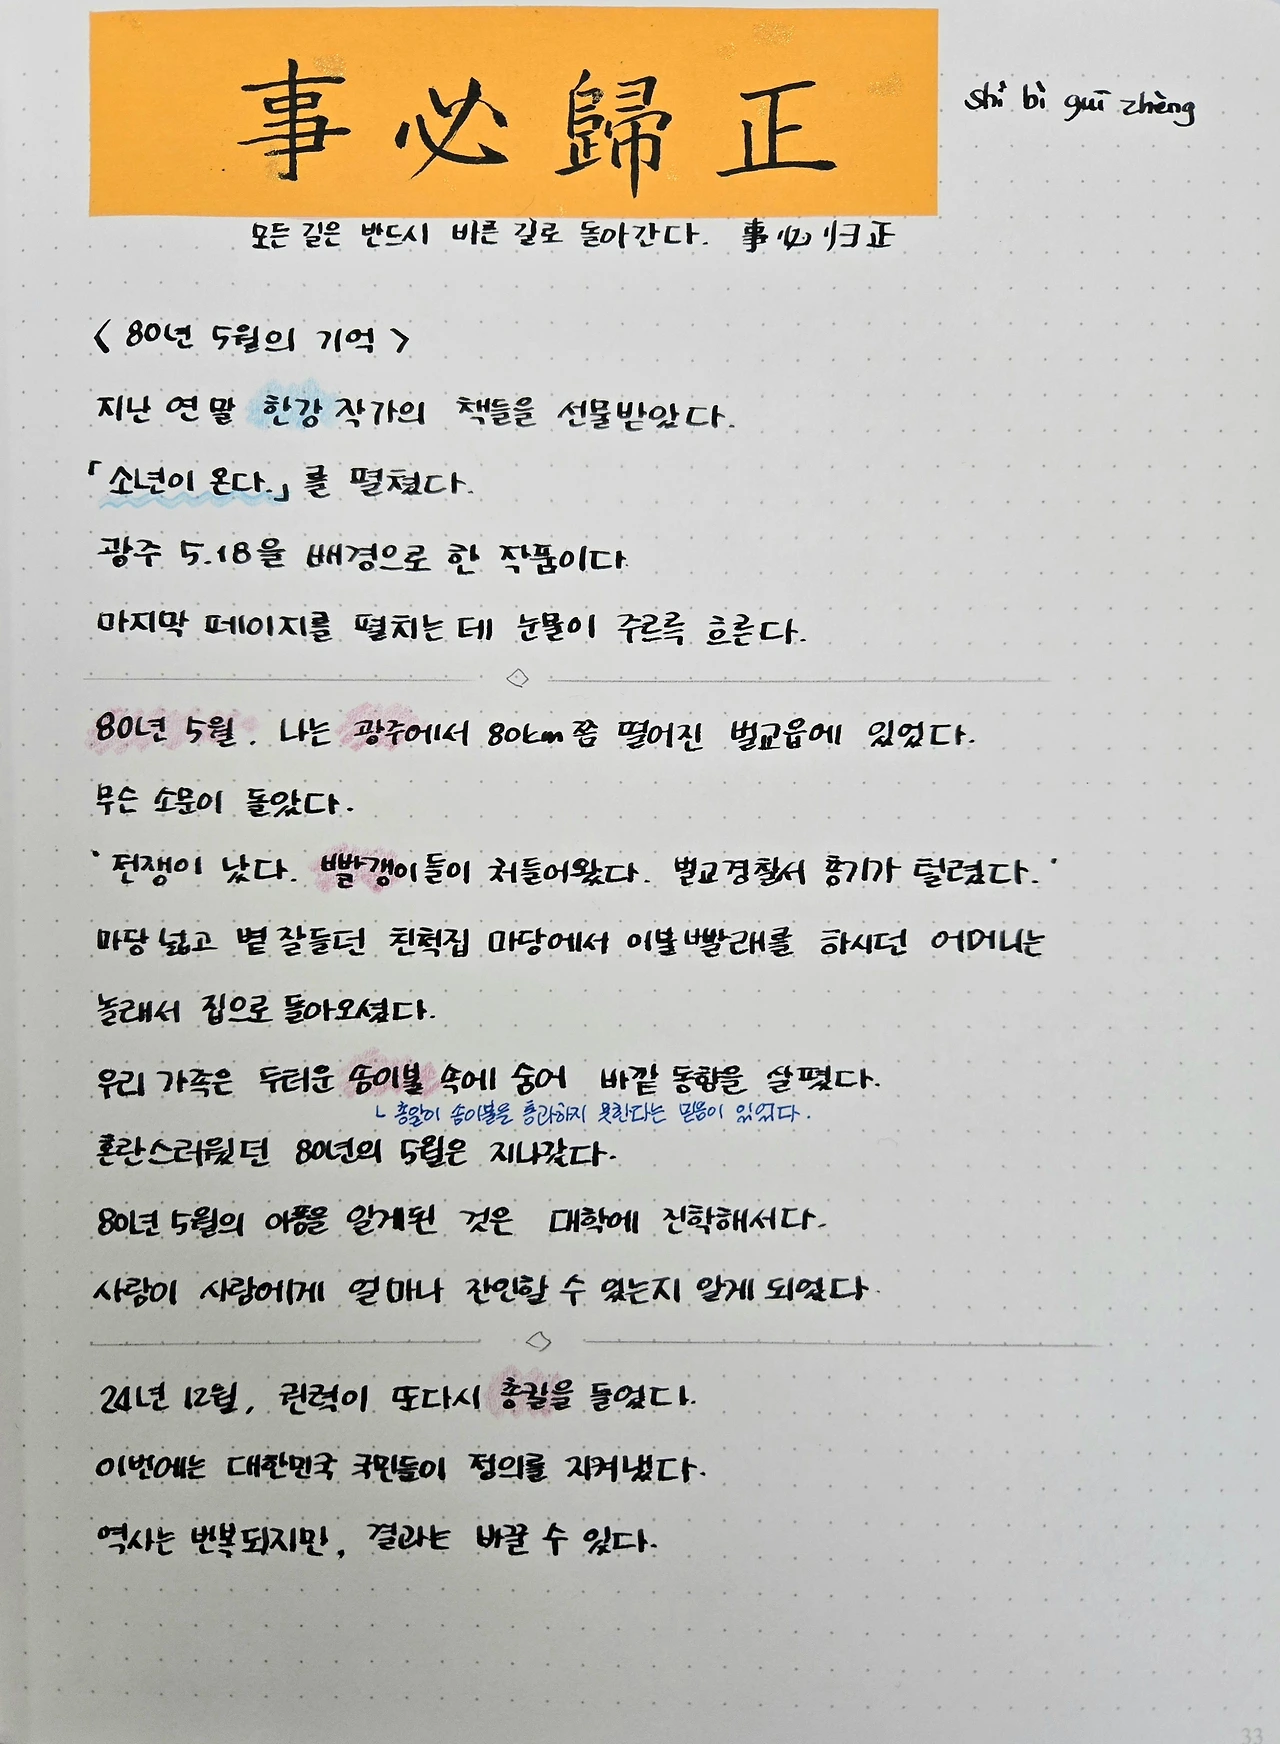 事必歸正
shì bì guī zhèng
모든 길은 반드시 바른 길로 돌아간다. 事必归正
< 80년 5월의 기억 >
지난 연말 한강 작가의 책들을 선물받았다.
「소년이 온다.」를 펼쳤다.
광주 5.18을 배경으로 한 작품이다
마지막 페이지를 펼치는데 눈물이 주르륵 흐른다.
80년 5월. 나는 광주에서 80km쯤 떨어진 벌교읍에 있었다.
무슨 소문이 돌았다.
'전쟁이 났다. 빨갱이들이 쳐들어왔다. 벌교경찰서 총기가 털렸다.'
마당 넓고 볕 잘들던 친척집 마당에서 이불빨래를 하시던 어머니는
놀래서 집으로 돌아오셨다.
우리 가족은 두터운 솜이불 속에 숨어 바깥 동향을 살폈다.
ㄴ 총알이 솜이불을 통과하지 못한다는 믿음이 있었다.
혼란스러웠던 80년의 5월은 지나갔다.
80년 5월의 아픔을 알게된 것은 대학에 진학해서다.
사람이 사람에게 얼마나 잔인할 수 있는지 알게 되었다.
24년 12월, 권력이 또다시 총칼을 들었다.
이번에는 대한민국 국민들이 정의를 지켜냈다.
역사는 반복되지만, 결과는 바꿀 수 있다.
33